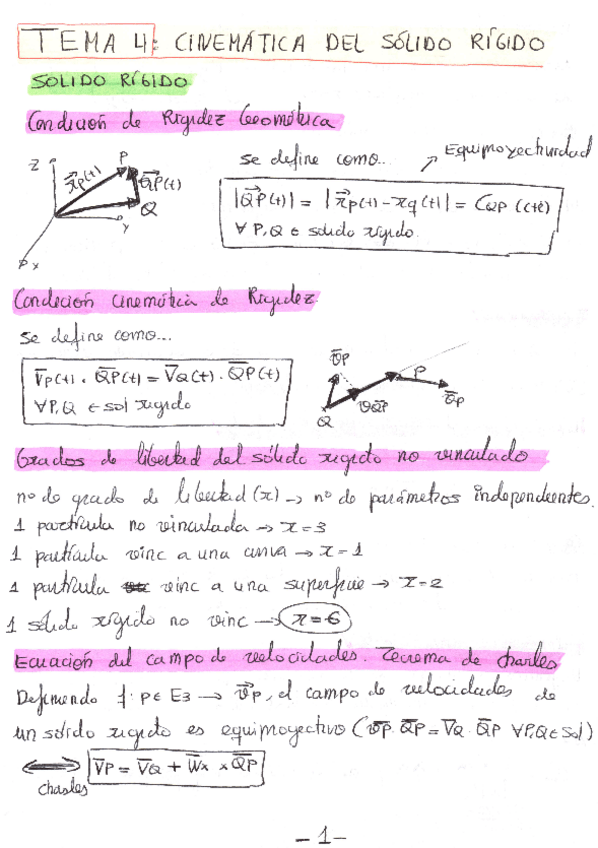 TEMA 4: CINEMÁTICA DEL SÓLIDO RÍGIDO
SOLIDO RÍGIDO.
Condición de Rigidez Geométrica
Z P x⃗p(t) Q⃗P(t) Q Y P x
se define como... ↗ Equiproyectividad
|Q⃗P(t)| = |x⃗p(t) - xq(t)| = CQP (cte)
∀ P,Q ∈ solido rígido.
Condición cinemática de Rigidez.
se define como...
V̅p(t) · Q̅P̅(t) = V̅Q(t) · Q̅P̅(t)
∀P,Q ∈ sol rigido
v̅p P v̅p vQ̅P̅ Q
Grados de libertad del sólido rigido no vinculado
nº de grado de libertad (x) → nº de parámetros independientes.
1 partícula no vinculada → x=3
1 partícula vinc a una curva → x=1
1 partícula vinc a una superficie → x=2
1 sólido rígido no vinc → x=6
Ecuación del campo de velocidades. Teorema de charles
Definiendo f: p∈ E3 → v⃗p, el campo de velocidades de
un sólido rigido es equiproyectivo (v̅p · Q̅P̅ = V̅Q · Q̅P̅ ∀P,Q∈ Sol)
⟺ V̅P = V̅Q + W̅x × Q̅P̅
charles
- 1 -